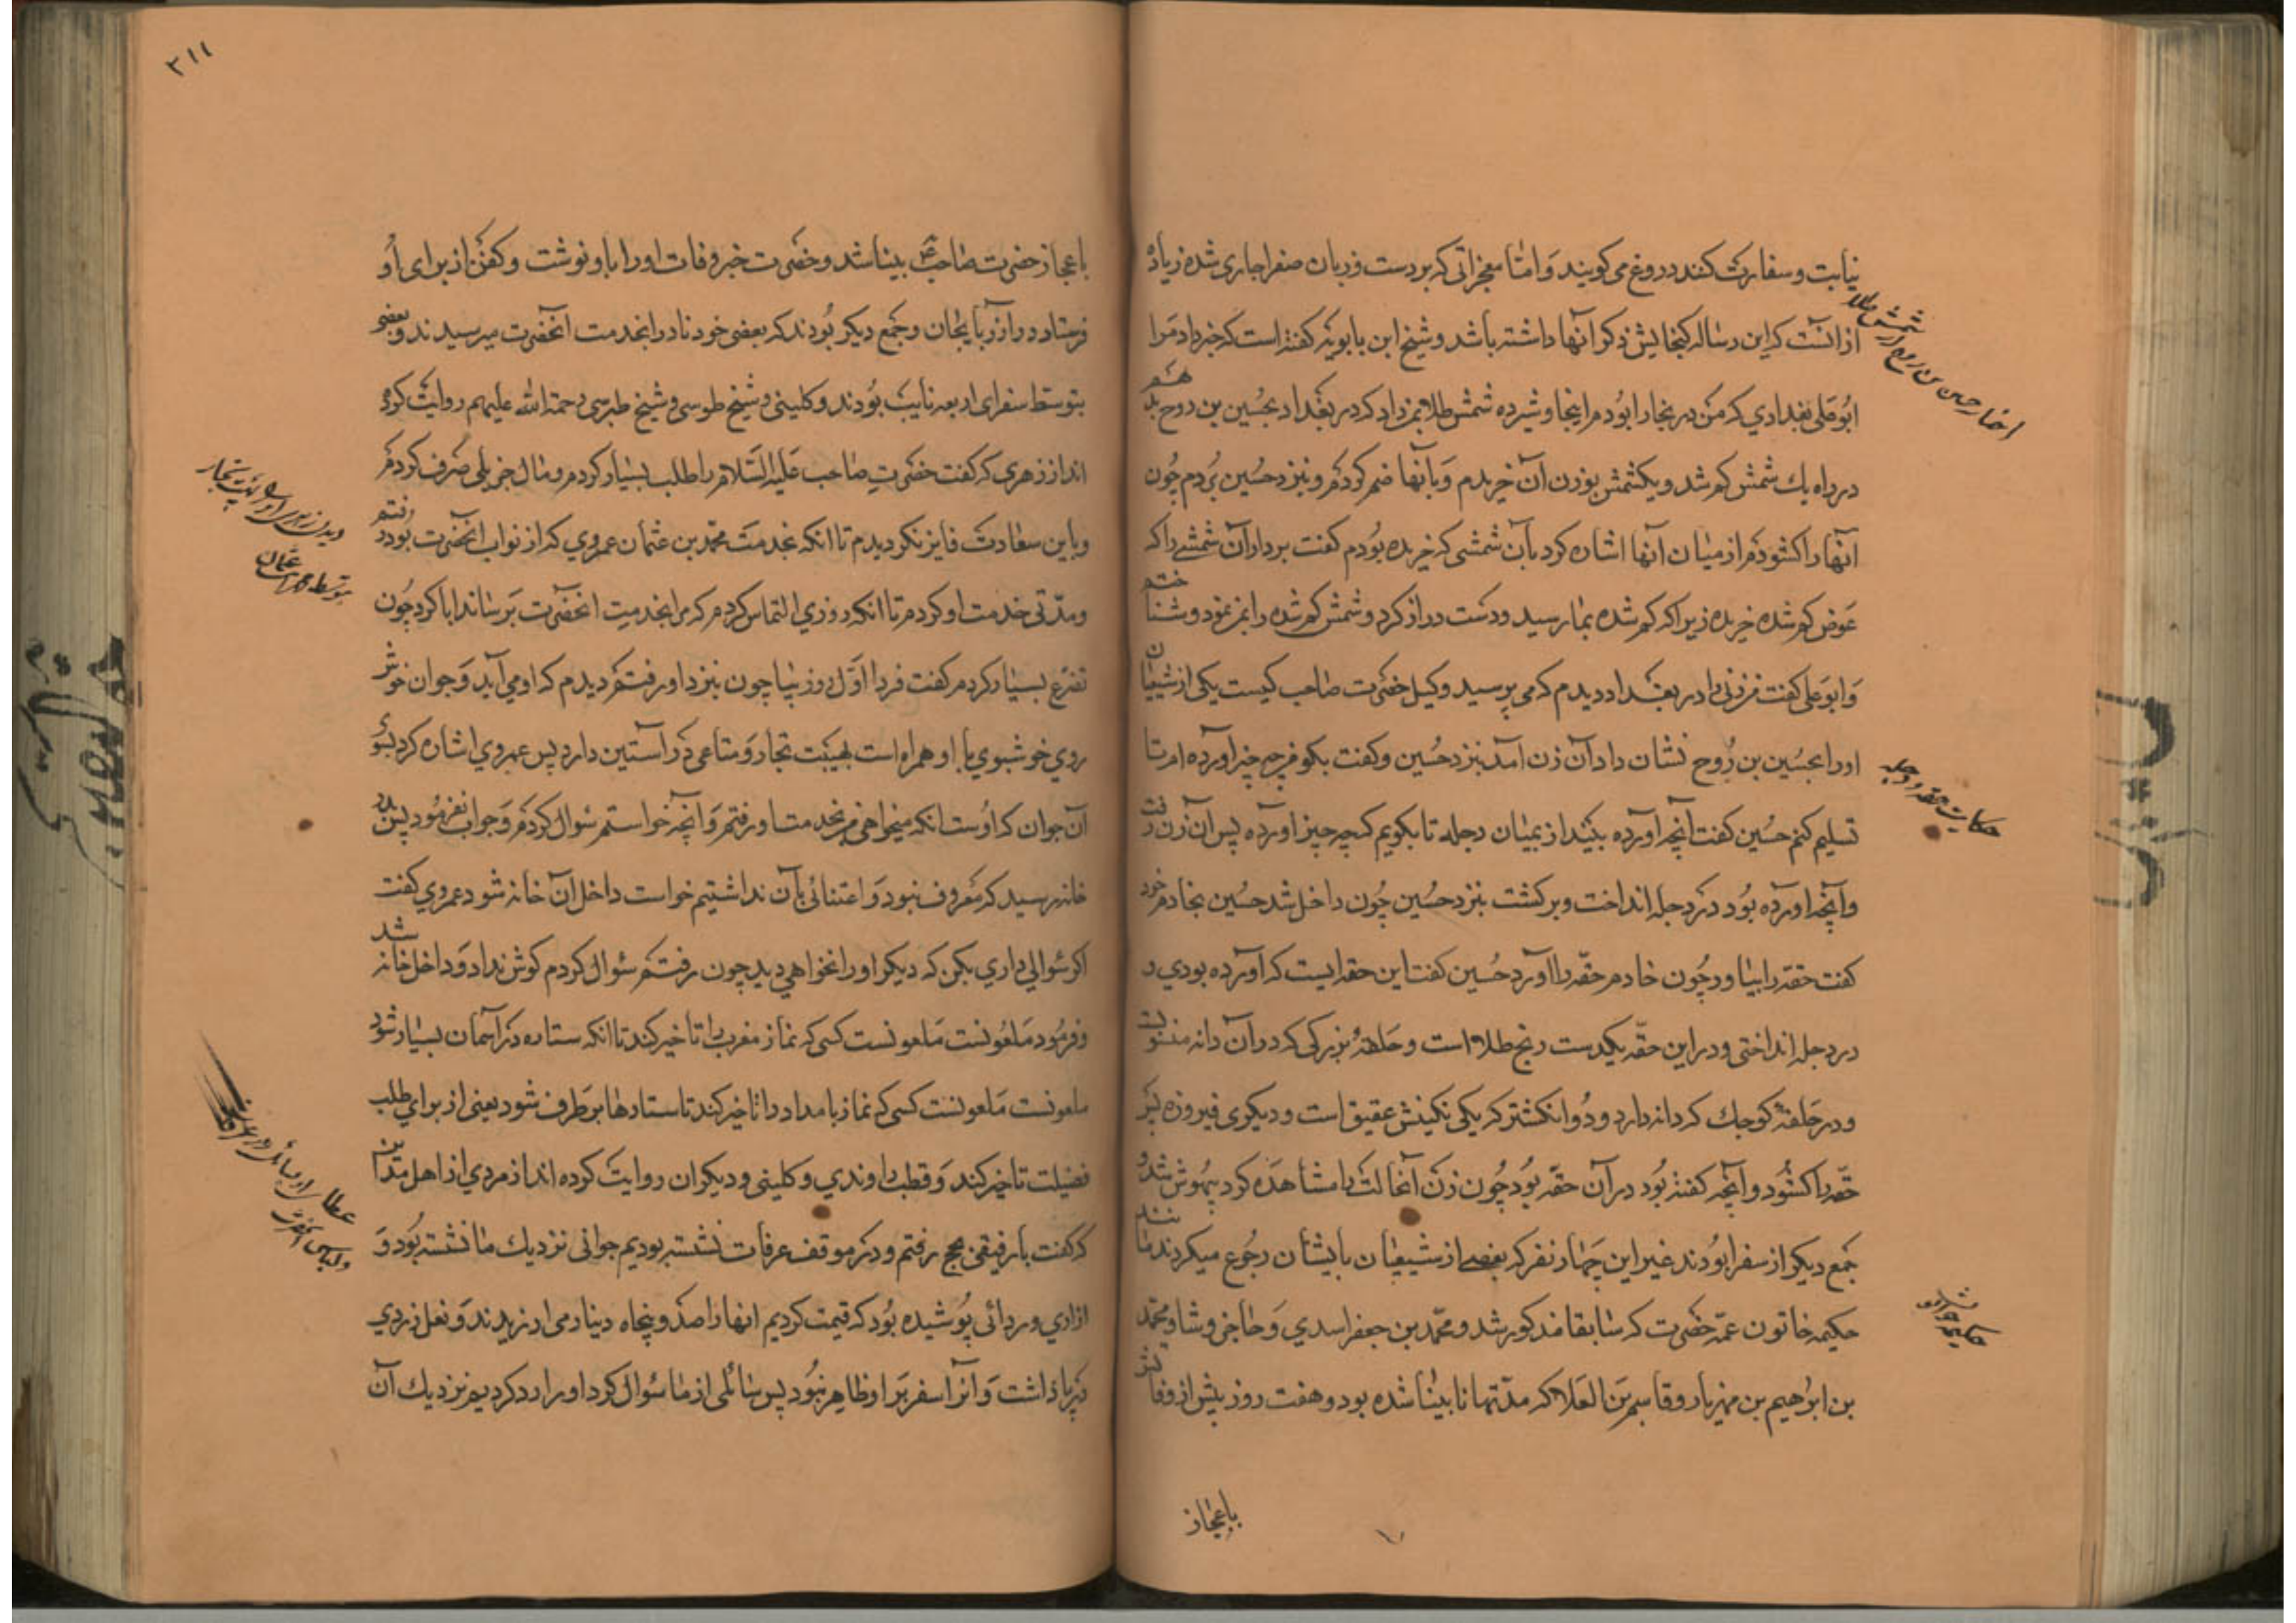 نیابت و سفارت کنند دروغ می کویند و امّا معجزاتی که بر دست و زبان سفرا جاری شده زیاده
از آنست که این رساله کنجایش ذکر آنها داشته باشد و شیخ ابن بابویه کفته است که خبر داد مرا
ابوعلی بغدادی که من در بخارا بودم اینجا وشیر ده شمش طلا بمن داد که در بغداد بحسین بن روح بدهم
در راه یک شمش کم شد و یکشمش بوزن آن خریدم و بآنها ضم کردم و بنزد حسین بردم چون
آنها را کشودم از میان آنها اشاره کرد بآن شمشی که خریده بودم کفت بردار آن شمشی را که
عوض کم شده خریده زیرا که کم شده بما رسید و دست دراز کرد و شمش کم شده را بمن نمود و شناختم
و ابوعلی کفت زنی را در بغداد دیدم که می پرسید وکیل حضرت صاحب کیست یکی از شیعیان
او را بحسین بن روح نشان داد آن زن آمد بنزد حسین و کفت بکو من چه چیز آورده ام تا
تسلیم کنم حسین کفت آنچه آورده بینداز بمیان دجله تا بکویم که چه چیز آورده پس آن زن رفت
و آنچه آورده بود در دجله انداخت و برکشت بنزد حسین چون داخل شد حسین بخادم خود
کفت حقه را بیاور چون خادم حقه را آورد حسین کفت این حقه ایست که آورده بودی و
در دجله انداختی و در این حقّه یکدست رنج طلا است و حلقهٔ بزرکی که در آن دانه منسوبست
و در حلقهٔ کوچک که دانه دارد و دو انکشتر که یکی نکینش عقیق است و دیکری فیروزه پس
حقه را کشود و آنچه کفته بود در آن حقّه بود چون زن آنحالت را مشاهده کرد بیهوش شد و
جمع دیکر از سفرا بودند غیر این چهار نفر که بعضی از شیعیان بایشان رجوع میکردند مانند
حکیمه خاتون عمّه حضرت که سابقا مذکور شد و محمّد بن جعفر اسدی و حاجز وشا و محمّد
بن ابرهیم بن مهزیار و قاسم بن العلا که مدّتها نابینا شده بود و هفت روز پیش از وفاتش
باعجاز
اخبار حسین بن روح از شمش طلا
حکایت حقه و دجله
حکیمه خواتون
٣١١
باعجاز حضرت صاحب بینا شد و حضرت خبر وفات او را باو نوشت و کفن از برای او
فرستاد در آزربایجان و جمع دیکر بودند که بعضی خود نادرا بخدمت آنحضرت میرسیدند و بعضی
بتوسط سفرای اربعه نایب بودند و کلینی و شیخ طوسی و شیخ طبرسی رحمة الله علیهم روایت کرده
اند از زهری که کفت حضرت صاحب علیه السّلام را طلب بسیار کردم و مال جزیلی صرف کردم
و باین سعادت فایز نکردیدم تا انکه بخدمت محمّد بن عثمان عمروی که از نواب آنحضرت بود رفتم
و مدّتی خدمت او کردم تا انکه روزی التماس کردم که مرا بخدمت انحضرت برساند ابا کرد چون
تضرّع بسیار کردم کفت فردا اوّل روز بیا چون بنزد او رفتم دیدم که او می آید و جوان خوش
روی خوشبوی با او همراه است بهیئت تجار و متاعی در آستین دارد پس عمروی اشاره کرد بسوی
آن جوان که اوست انکه میخواهی من بخدمت او رفتم و آنچه خواستم سؤال کردم و جواب فرمود پس بدر
خانه رسید که معروف نبود و اعتنائی بآن نداشتیم خواست داخل آن خانه شود عمروی کفت
اکر سؤالی داری بکن که دیکر او را نخواهی دید چون رفتم سؤال کردم کوش نداد و داخل خانه شد
و فرمود ملعونست ملعونست کسی که نماز مغرب را تاخیر کند تا انکه ستاره در آسمان بسیار شود
ملعونست ملعونست کسی که نماز بامداد را تاخیر کند تا ستارها برطرف شود یعنی از برای طلب
فضیلت تاخیر کند و قطب راوندی و کلینی و دیکران روایت کرده اند از مردی از اهل مدآین
که کفت با رفیقی بحج رفتم و در موقف عرفات نشسته بودیم جوانی نزدیک ما نشسته بود و
ازاری و ردائی پوشیده بود که قیمت کردیم انها را صد و پنجاه دینار می ارزیدند و نعل زردی
در پا داشت و اثر سفر بر او ظاهر نبود پس سائلی از ما سؤال کرد او را رد کردیم نزدیک آن
دیدن زهری او را بهیئت تجار
بتوسط محمد بن عثمان